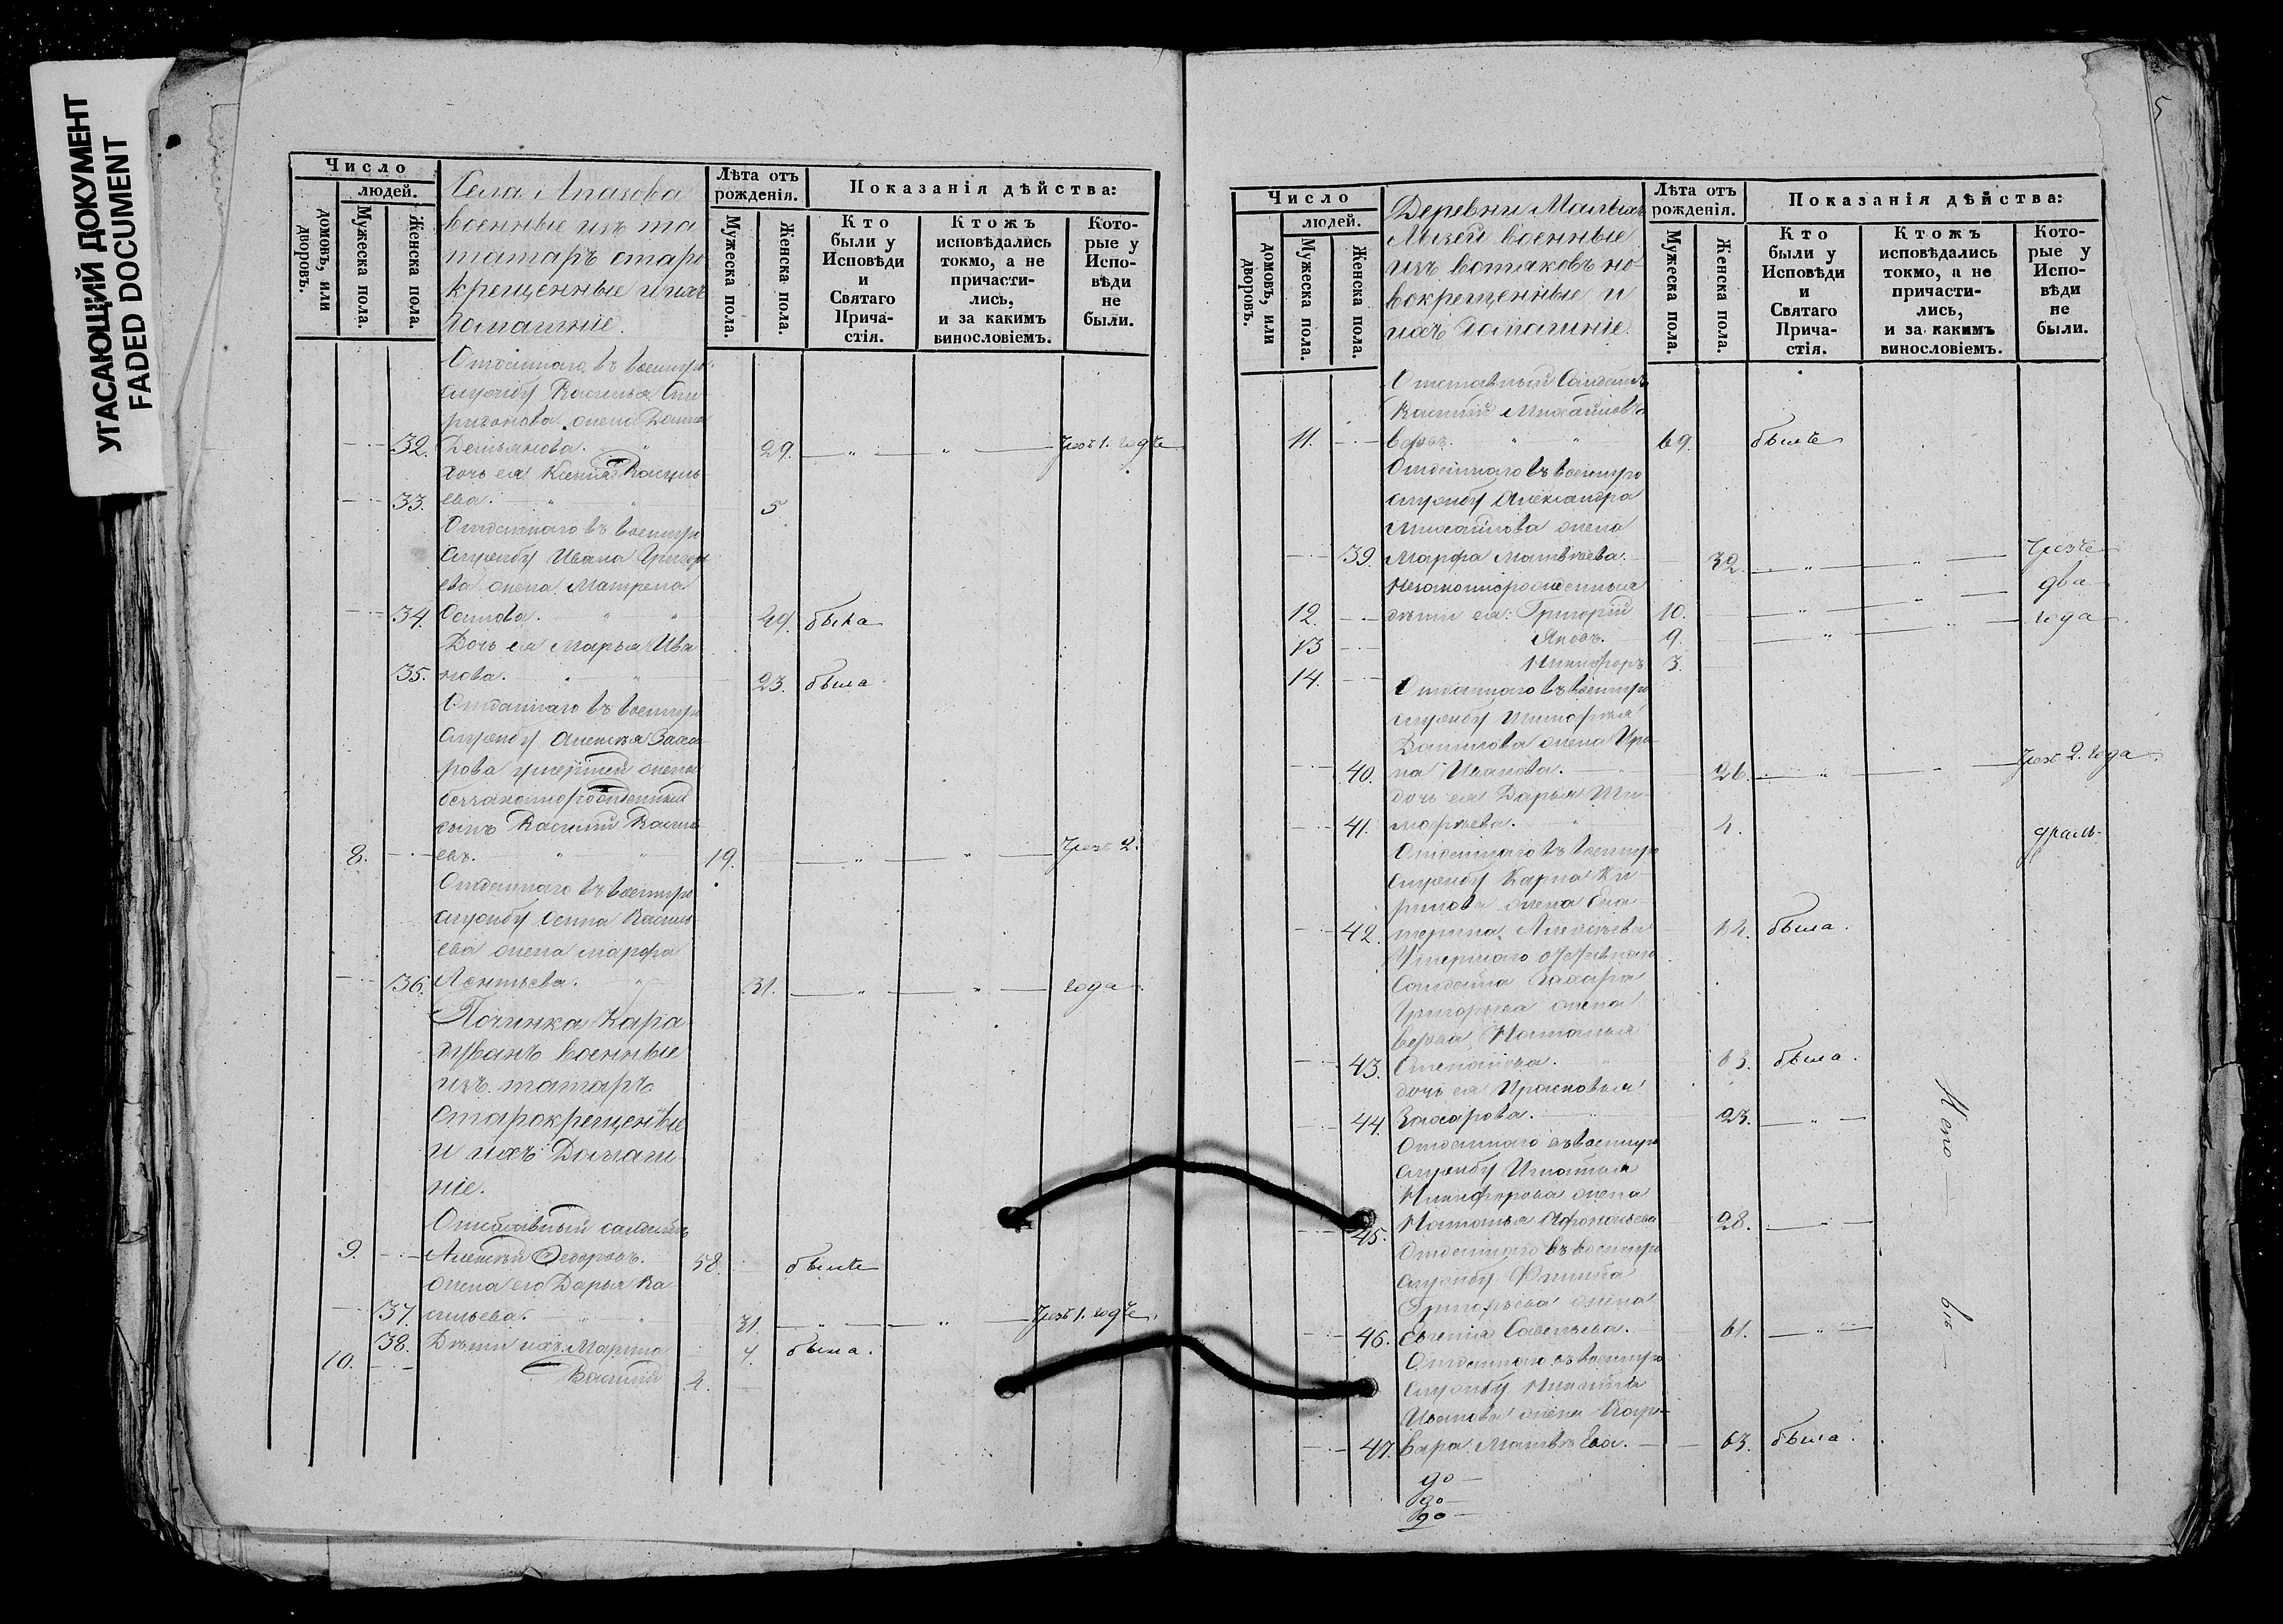 УГАСАЮЩИЙ ДОКУМЕНТ
FADED DOCUMENT
Число
людей.
домовъ, или дворовъ.
Мужеска пола.
Женска пола.
Села Апазова
военные изъ та
татаръ старо
крещенные и ихъ
домашніе.
Лѣта отъ рожденія.
Мужеска пола.
Женска пола.
Показанія дѣйства:
Кто были у Исповѣди и Святаго Прича-стія.
Ктожъ исповѣдались токмо, а не причасти-лись, и за какимъ винословіемъ.
Кото-рые у Испо-вѣди не были.
Отданнаго въ военную
службу Василья Спи
ридонова жена Домна
32. Демьянова. 29. чрезъ 1. годъ
дочь ея Ксенія Василь
33. ева. 5
Отданнаго въ военную
службу Ивана Григорь
ева жена Матрена
34. Осипова. 49. была
Дочь ея Марья Ива
35. нова. 23. была
Отданнаго въ военную
службу Алексѣя Заха
рова умершей жены
беззаконнорожденный
сынъ Василий Василь
8. евъ. 19. чрезъ 2.
Отданнаго въ военную
службу Осипа Василь
ева жена Марфа
36. Леонтьева. 31. года
Починка Кара
дуванъ военные
изъ татаръ
старокрещенные
и ихъ Домаш
ніе.
Отставный солдатъ
9. Алексѣй Ѳедоровъ. 58. былъ
жена его Дарья Ва
37. сильева. 31. чрезъ 1. годъ.
38. Дѣти ихъ: Марина 7. была.
10. Василій 4.
5
Число
людей.
домовъ, или дворовъ.
Мужеска пола.
Женска пола.
Деревни Малыхъ
Лызей военные
изъ вотяковъ но-
вокрещенные и
ихъ домашніе.
Лѣта отъ рожденія.
Мужеска пола.
Женска пола.
Показанія дѣйства:
Кто были у Исповѣди и Святаго Прича-стія.
Ктожъ исповѣдались токмо, а не причасти-лись, и за какимъ винословіемъ.
Кото-рые у Испо-вѣди не были.
Отставный Солдатъ
Василій Михайловъ
11. вдовъ. 69. былъ
Отданнаго въ военную
службу Александра
Михайлова жена
39. Марфа Матвѣева. 32. чрезъ
Незаконнорожденныя два
12. дѣти ея: Григорій 10. года
13 Яковъ. 9.
14. Никифоръ 3.
Отданнаго въ военную
службу Тимофѣя
Данилова жена Ири-
40. на Иванова. 26. чрезъ 2. года.
дочь ея Дарья Ти-
41. мофѣева. 4.
Отданнаго въ военную
службу Карпа Ки-
рилова жена Ека-
42. терина Алексѣева 64. была.
Умершаго отставнаго
Солдата Захара
Григорьева жена
вдова Наталья
43. Степанова. 63. была.
дочь ея Прасковья
44. Захарова. 23.
Отданнаго въ военную
службу Игнатья
Никифорова жена
45. Наталья Афонасьева 28.
Отданнаго въ военную
службу Филипа
Григорьева жена
46. Евгенія Савельева. 61.
Отданнаго въ военную
службу Никиты
Иванова жена Вар-
47. вара Матвѣева. 63. была.